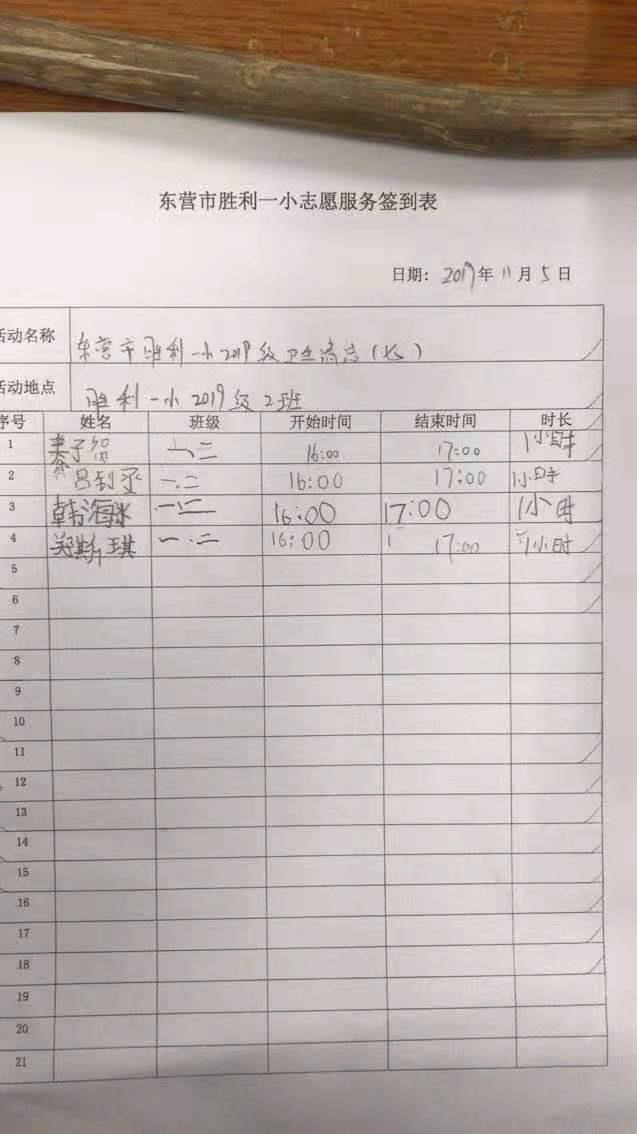 东营市胜利一小志愿服务签到表
日期: 2019年11月5日
活动名称 东营市胜利一小2019级卫生清洁（长）
活动地点 胜利一小2019级2班
序号 姓名 班级 开始时间 结束时间 时长
1 子 一、二 16:00 17:00 1小时
2 吕 一.二 16:00 17:00 1小时
3 韩海冰 一.二 16:00 17:00 1小时
4 郑斯琪 一.二 16:00 17:00 1小时
5
6
7
8
9
10
11
12
13
14
15
16
17
18
19
20
21